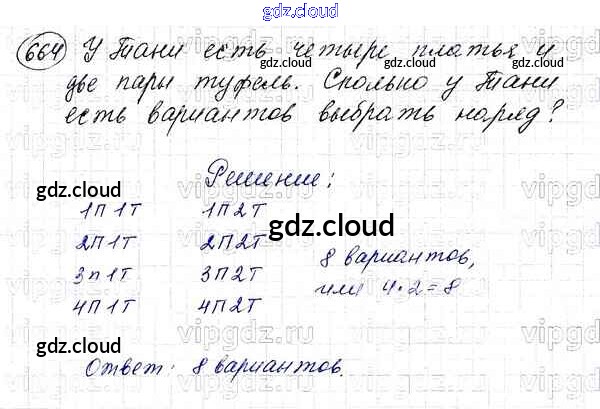 gdz.cloud
664 У Тани есть четыре платья и
две пары туфель. Сколько у Тани
есть вариантов выбрать наряд?
gdz.cloud
Решение:
gdz.cloud
gdz.cloud
1П1Т 1П2Т
gdz.cloud
2П1Т 2П2Т
8 вариантов,
3П1Т 3П2Т
или 4·2=8
4П1Т 4П2Т
gdz.cloud
gdz.cloud
Ответ: 8 вариантов.